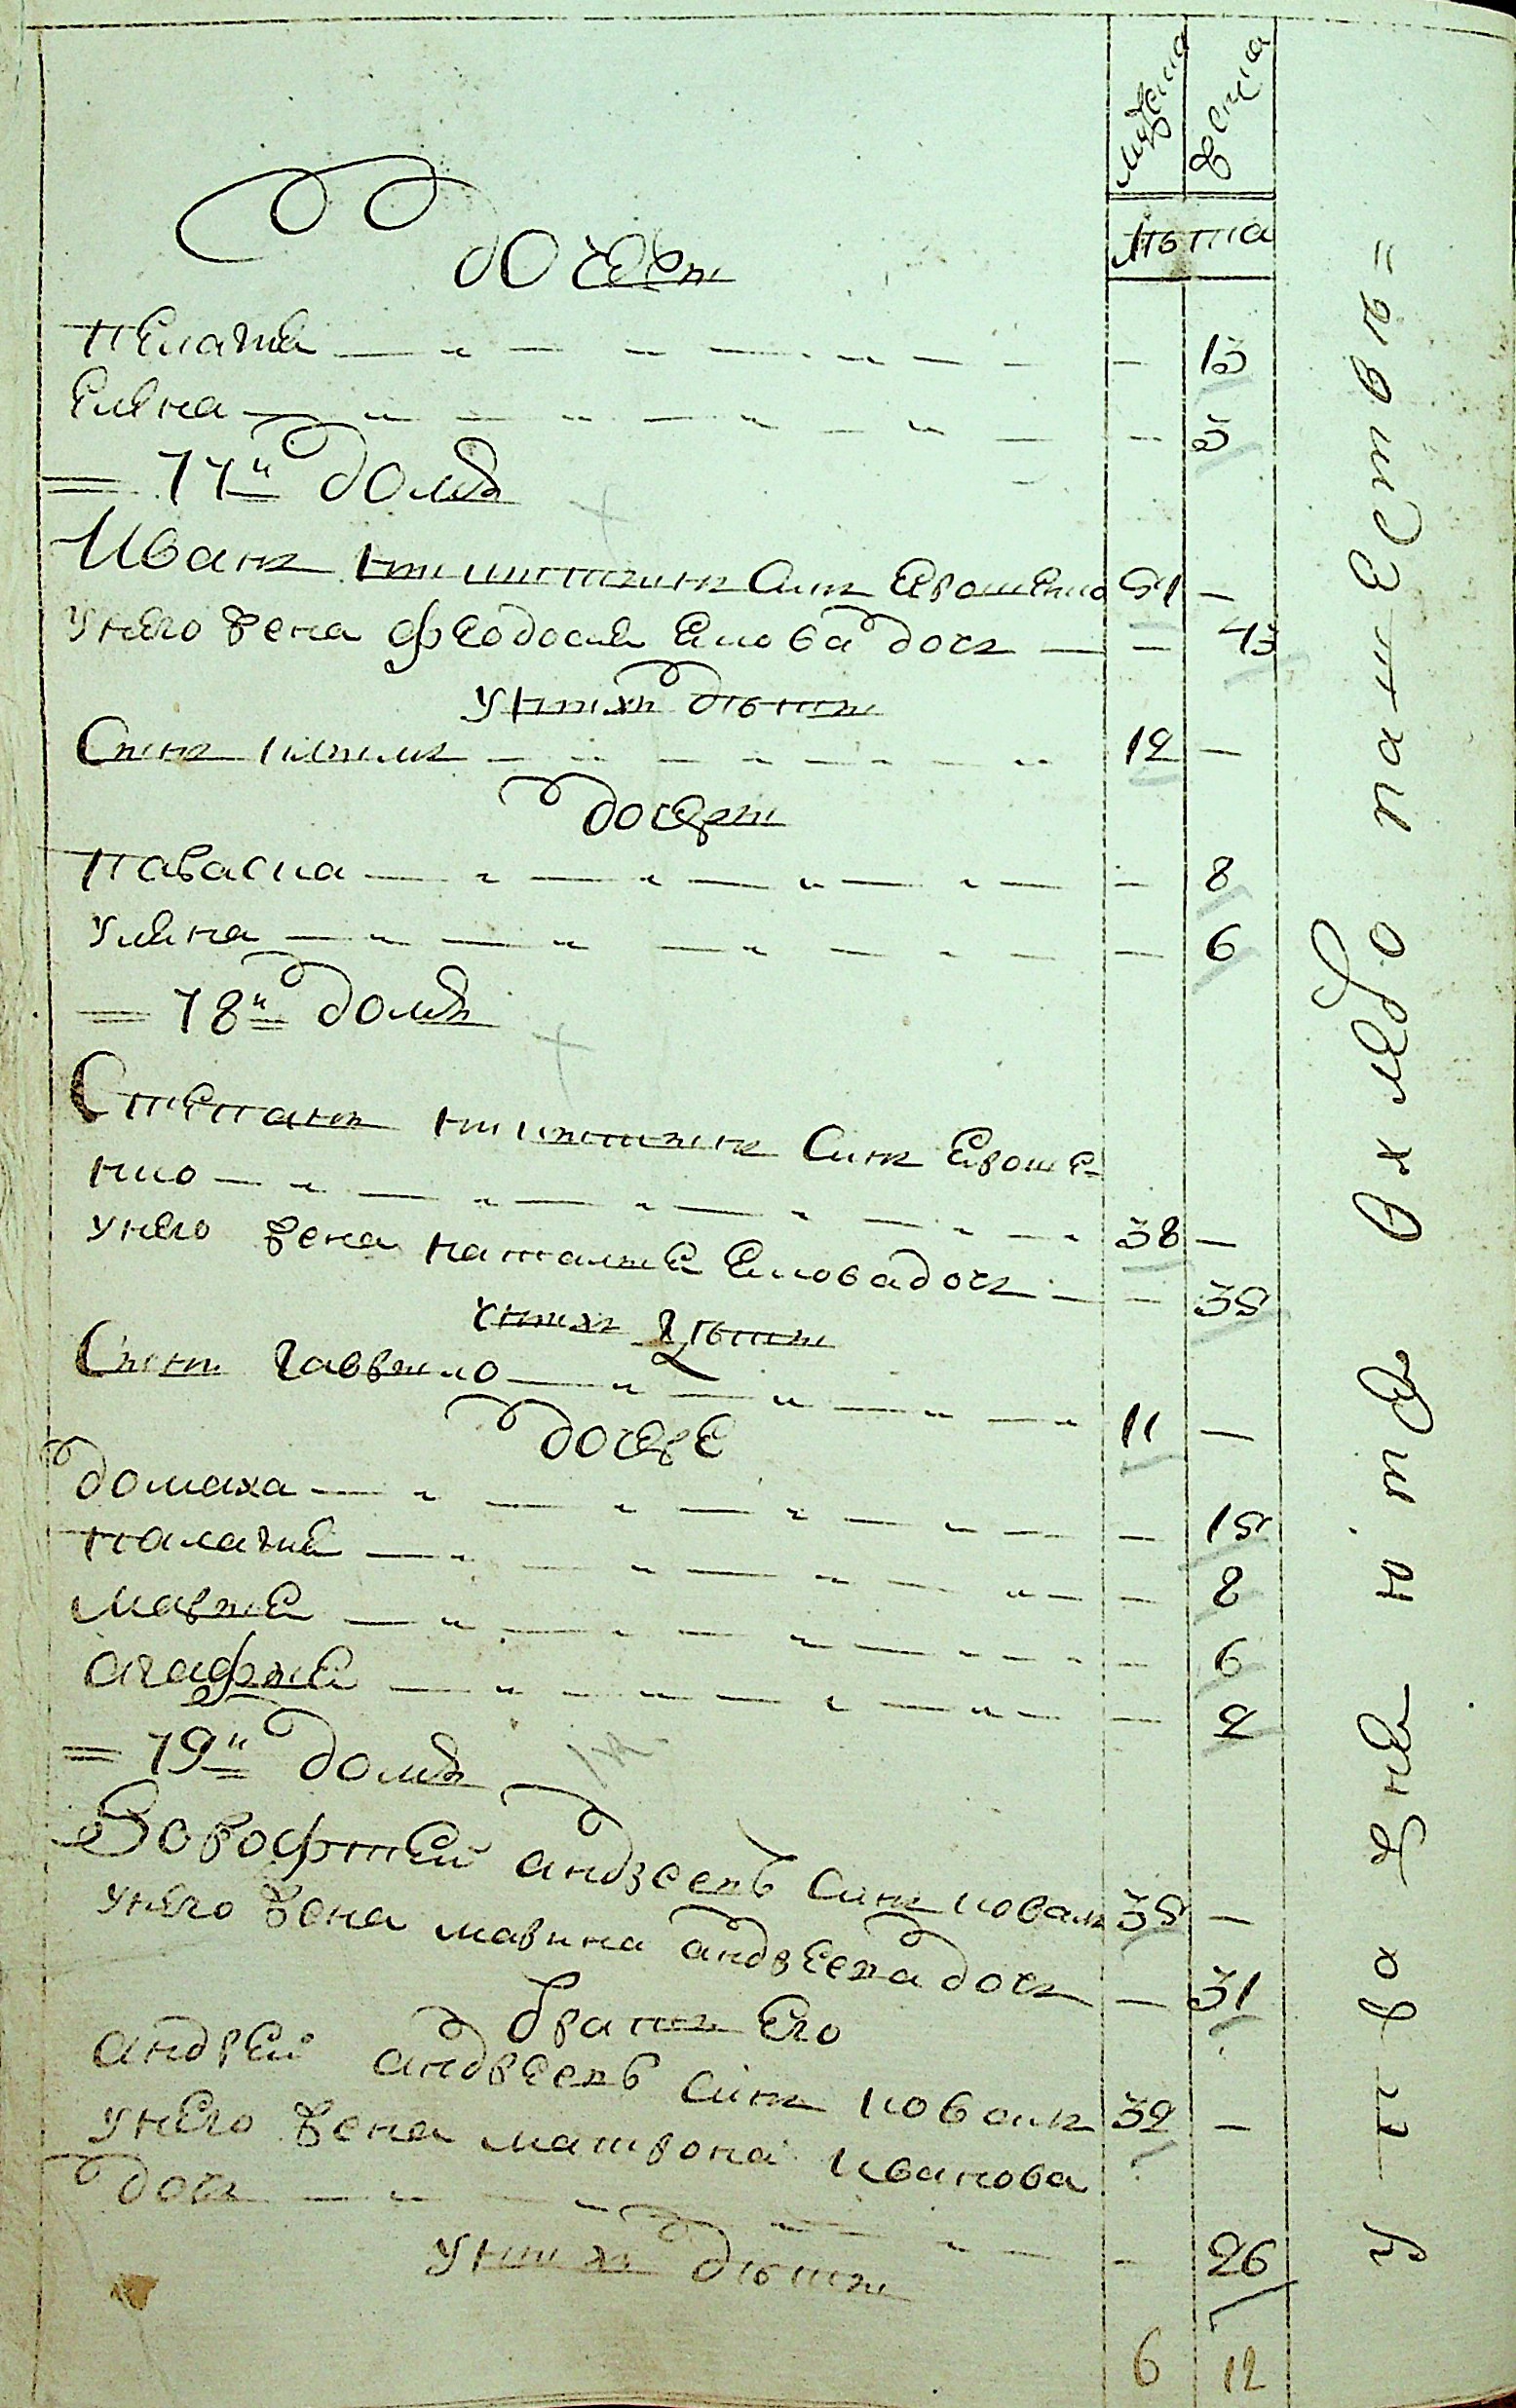 мужеска
женска
лѣта
дочери
пелагиѣ — 13
Елена — 3
= 77й домъ
Иванъ никитинъ синъ Ерошенко 51 —
унего жена феодосиѣ Екова дочь — 43
унихъ дѣти
Синъ климъ 12 —
дочери
параска — 8
улияна — 6
= 78й домъ
Степанъ никитинъ синъ Ероше=
нко 38 —
унего жена наталиѣ Екова дочь — 35
унихъ дѣти
Синъ гаврило 11 —
дочере
домаха — 15
палагиѣ — 8
мариѣ — 6
агафиѣ — 2
= 79й домъ
Дорофтей андреевъ синъ коваль 35 —
унего жена марина андреева дочь — 31
братъ Его
андрей андреевъ синъ коваль 32 —
унего жена матрона иванова
дочь — 26
унихъ дѣти
6 12